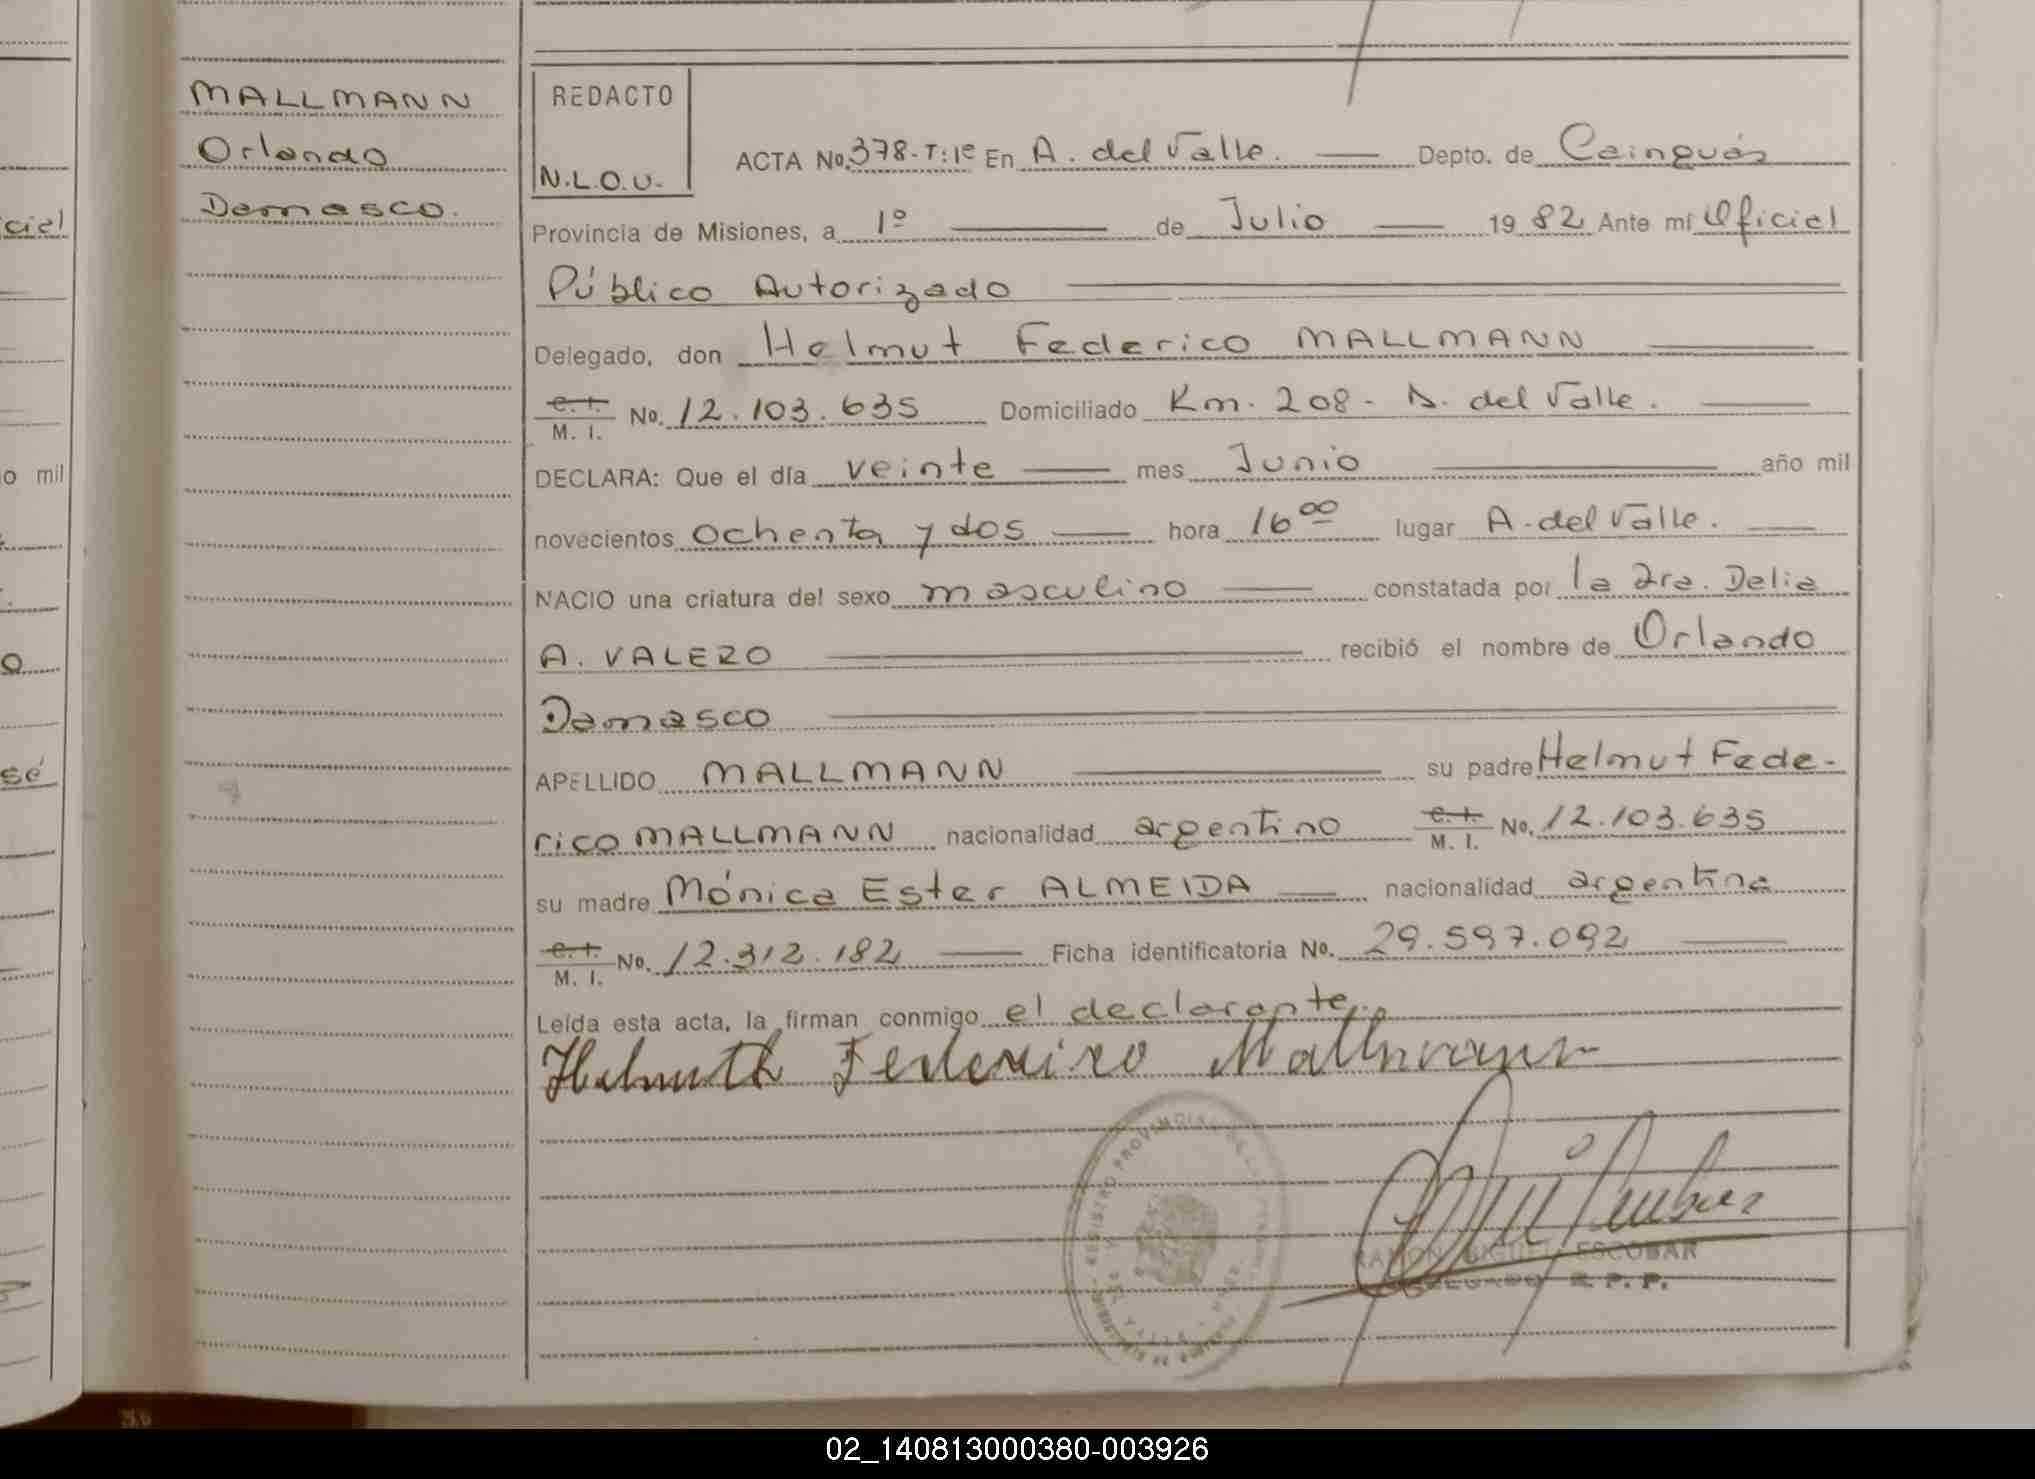 MALLMANN
Orlando
Damasco.
ciel
o mil
sé
REDACTO
N.L.O.U.
ACTA No. 378-T:1º En A. del Valle. Depto. de Cainguás
Provincia de Misiones, a 1º de Julio 1982 Ante mí Oficial
Público Autorizado
Delegado, don Helmut Federico MALLMANN
C. I. M. I. No. 12.103.635 Domiciliado Km. 208 - A. del Valle.
DECLARA: Que el día veinte mes Junio año mil
novecientos ochenta y dos hora 16 00 lugar A. del Valle.
NACIO una criatura del sexo masculino constatada por la Dra. Delia
A. VALERO recibió el nombre de Orlando
Damasco
APELLIDO MALLMANN su padre Helmut Fede-
rico MALLMANN nacionalidad argentino C. I. M. I. No. 12.103.635
su madre Mónica Ester ALMEIDA nacionalidad argentina
C. I. M. I. No. 12.312.182 Ficha identificatoria No. 29.597.092
Leída esta acta, la firman conmigo el declarante.
Helmuth Federico Mallmann
REGISTRO PROVINCIAL DE LAS PERSONAS
RAMON MIGUEL ESCOBAR
DELEGADO R. P. P.
02_140813000380-003926